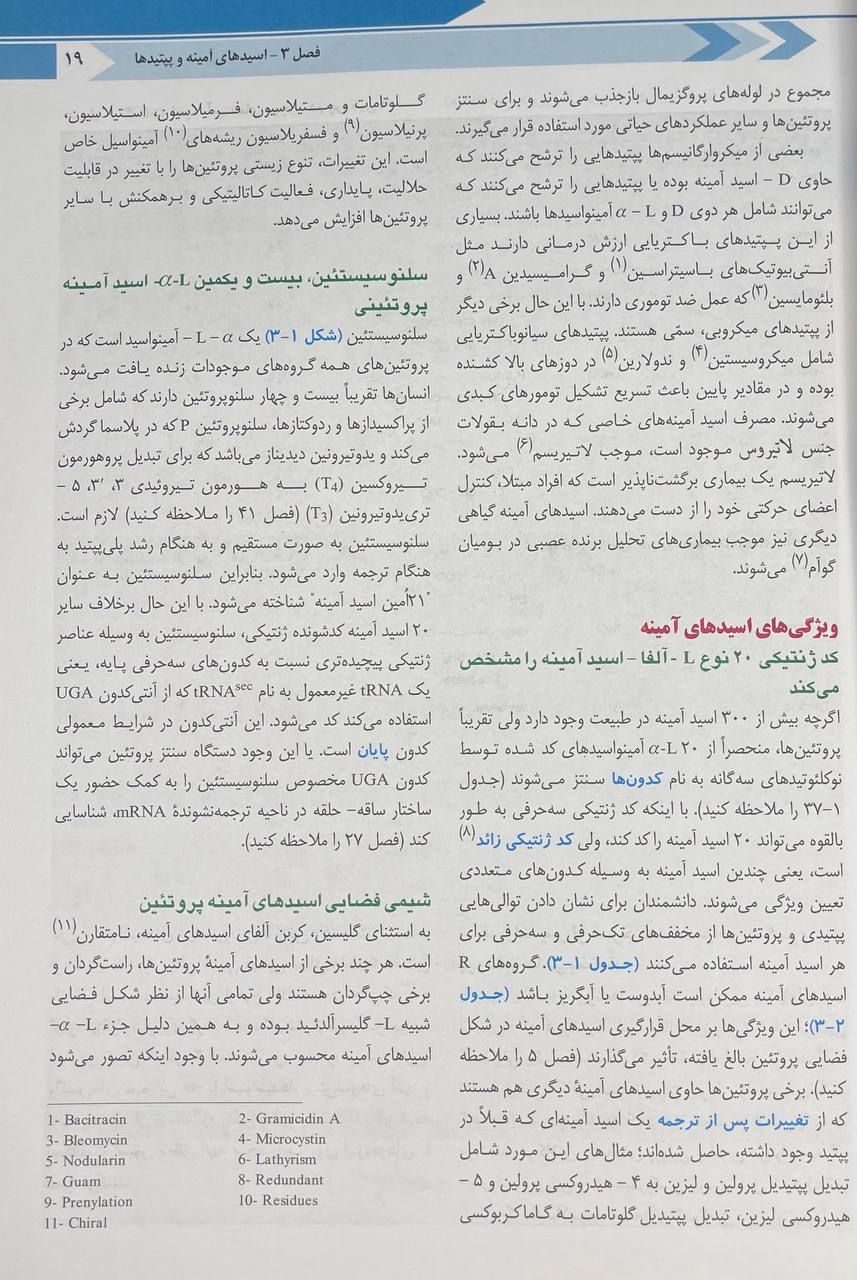 فصل ۳ – اسیدهای آمینه و پپتیدها ۱۹
مجموع در لوله‌های پروگزیمال بازجذب می‌شوند و برای سنتز
پروتئین‌ها و سایر عملکردهای حیاتی مورد استفاده قرار می‌گیرند.
بعضی از میکروارگانیسم‌ها پپتیدهایی را ترشح می‌کنند که
حاوی D – اسید آمینه بوده یا پپتیدهایی را ترشح می‌کنند که
می‌توانند شامل هر دوی D و α – L آمینواسیدها باشند. بسیاری
از این پپتیدهای باکتریایی ارزش درمانی دارند مثل
آنتی‌بیوتیک‌های باسیتراسین(۱) و گرامیسیدین A(۲) و
بلئومایسین(۳) که عمل ضد توموری دارند. با این حال برخی دیگر
از پپتیدهای میکروبی، سمّی هستند. پپتیدهای سیانوباکتریایی
شامل میکروسیستین(۴) و ندولارین(۵) در دوزهای بالا کشنده
بوده و در مقادیر پایین باعث تسریع تشکیل تومورهای کبدی
می‌شوند. مصرف اسید آمینه‌های خاصی که در دانه بقولات
جنس لاتیروس موجود است، موجب لاتیریسم(۶) می‌شود.
لاتیریسم یک بیماری برگشت‌ناپذیر است که افراد مبتلا، کنترل
اعضای حرکتی خود را از دست می‌دهند. اسیدهای آمینه گیاهی
دیگری نیز موجب بیماری‌های تحلیل برنده عصبی در بومیان
گوآم(۷) می‌شوند.
ویژگی‌های اسیدهای آمینه
کد ژنتیکی ۲۰ نوع L - آلفا – اسید آمینه را مشخص
می‌کند
اگرچه بیش از ۳۰۰ اسید آمینه در طبیعت وجود دارد ولی تقریباً
پروتئین‌ها، منحصراً از ۲۰ α-L آمینواسیدهای کد شده توسط
نوکلئوتیدهای سه‌گانه به نام کدون‌ها سنتز می‌شوند (جدول
۱-۳۷ را ملاحظه کنید). با اینکه کد ژنتیکی سه‌حرفی به طور
بالقوه می‌تواند ۲۰ اسید آمینه را کد کند، ولی کد ژنتیکی زائد(۸)
است، یعنی چندین اسید آمینه به وسیله کدون‌های متعددی
تعیین ویژگی می‌شوند. دانشمندان برای نشان دادن توالی‌هایی
پپتیدی و پروتئین‌ها از مخفف‌های تک‌حرفی و سه‌حرفی برای
هر اسید آمینه استفاده می‌کنند (جدول ۱-۳). گروه‌های R
اسیدهای آمینه ممکن است آبدوست یا آبگریز باشد (جدول
۲-۳)؛ این ویژگی‌ها بر محل قرارگیری اسیدهای آمینه در شکل
فضایی پروتئین بالغ یافته، تأثیر می‌گذارند (فصل ۵ را ملاحظه
کنید). برخی پروتئین‌ها حاوی اسیدهای آمینهٔ دیگری هم هستند
که از تغییرات پس از ترجمه یک اسید آمینه‌ای که قبلاً در
پپتید وجود داشته، حاصل شده‌اند؛ مثال‌های این مورد شامل
تبدیل پپتیدیل پرولین و لیزین به ۴ – هیدروکسی پرولین و ۵ –
هیدروکسی لیزین، تبدیل پپتیدیل گلوتامات به گاماکربوکسی
گلوتامات و متیلاسیون، فرمیلاسیون، استیلاسیون،
پرنیلاسیون(۹) و فسفریلاسیون ریشه‌های(۱۰) آمینواسیل خاص
است. این تغییرات، تنوع زیستی پروتئین‌ها را با تغییر در قابلیت
حلالیت، پایداری، فعالیت کاتالیتیکی و برهمکنش با سایر
پروتئین‌ها افزایش می‌دهد.
سلنوسیستئین، بیست و یکمین α-L- اسید آمینه
پروتئینی
سلنوسیستئین (شکل ۱-۳) یک α – L – آمینواسید است که در
پروتئین‌های همه گروه‌های موجودات زنده یافت می‌شود.
انسان‌ها تقریباً بیست و چهار سلنوپروتئین دارند که شامل برخی
از پراکسیدازها و ردوکتازها، سلنوپروتئین P که در پلاسما گردش
می‌کند و یدوتیرونین دیدیناز می‌باشد که برای تبدیل پروهورمون
تیروکسین (T4) به هورمون تیروئیدی ۳، ′۳، ۵ –
تری‌یدوتیرونین (T3) (فصل ۴۱ را ملاحظه کنید) لازم است.
سلنوسیستئین به صورت مستقیم و به هنگام رشد پلی‌پپتید به
هنگام ترجمه وارد می‌شود. بنابراین سلنوسیستئین به عنوان
"۲۱اُمین اسید آمینه" شناخته می‌شود. با این حال برخلاف سایر
۲۰ اسید آمینه کدشونده ژنتیکی، سلنوسیستئین به وسیله عناصر
ژنتیکی پیچیده‌تری نسبت به کدون‌های سه‌حرفی پایه، یعنی
یک tRNA غیرمعمول به نام tRNAsec که از آنتی‌کدون UGA
استفاده می‌کند کد می‌شود. این آنتی‌کدون در شرایط معمولی
کدون پایان است. با این وجود دستگاه سنتز پروتئین می‌تواند
کدون UGA مخصوص سلنوسیستئین را به کمک حضور یک
ساختار ساقه- حلقه در ناحیه ترجمه‌نشوندهٔ mRNA، شناسایی
کند (فصل ۲۷ را ملاحظه کنید).
شیمی فضایی اسیدهای آمینه پروتئین
به استثنای گلیسین، کربن آلفای اسیدهای آمینه، نامتقارن(۱۱)
است. هر چند برخی از اسیدهای آمینهٔ پروتئین‌ها، راست‌گردان و
برخی چپ‌گردان هستند ولی تمامی آنها از نظر شکل فضایی
شبیه L- گلیسرآلدئید بوده و به همین دلیل جزء α -L-
اسیدهای آمینه محسوب می‌شوند. با وجود اینکه تصور می‌شود
1- Bacitracin 2- Gramicidin A
3- Bleomycin 4- Microcystin
5- Nodularin 6- Lathyrism
7- Guam 8- Redundant
9- Prenylation 10- Residues
11- Chiral